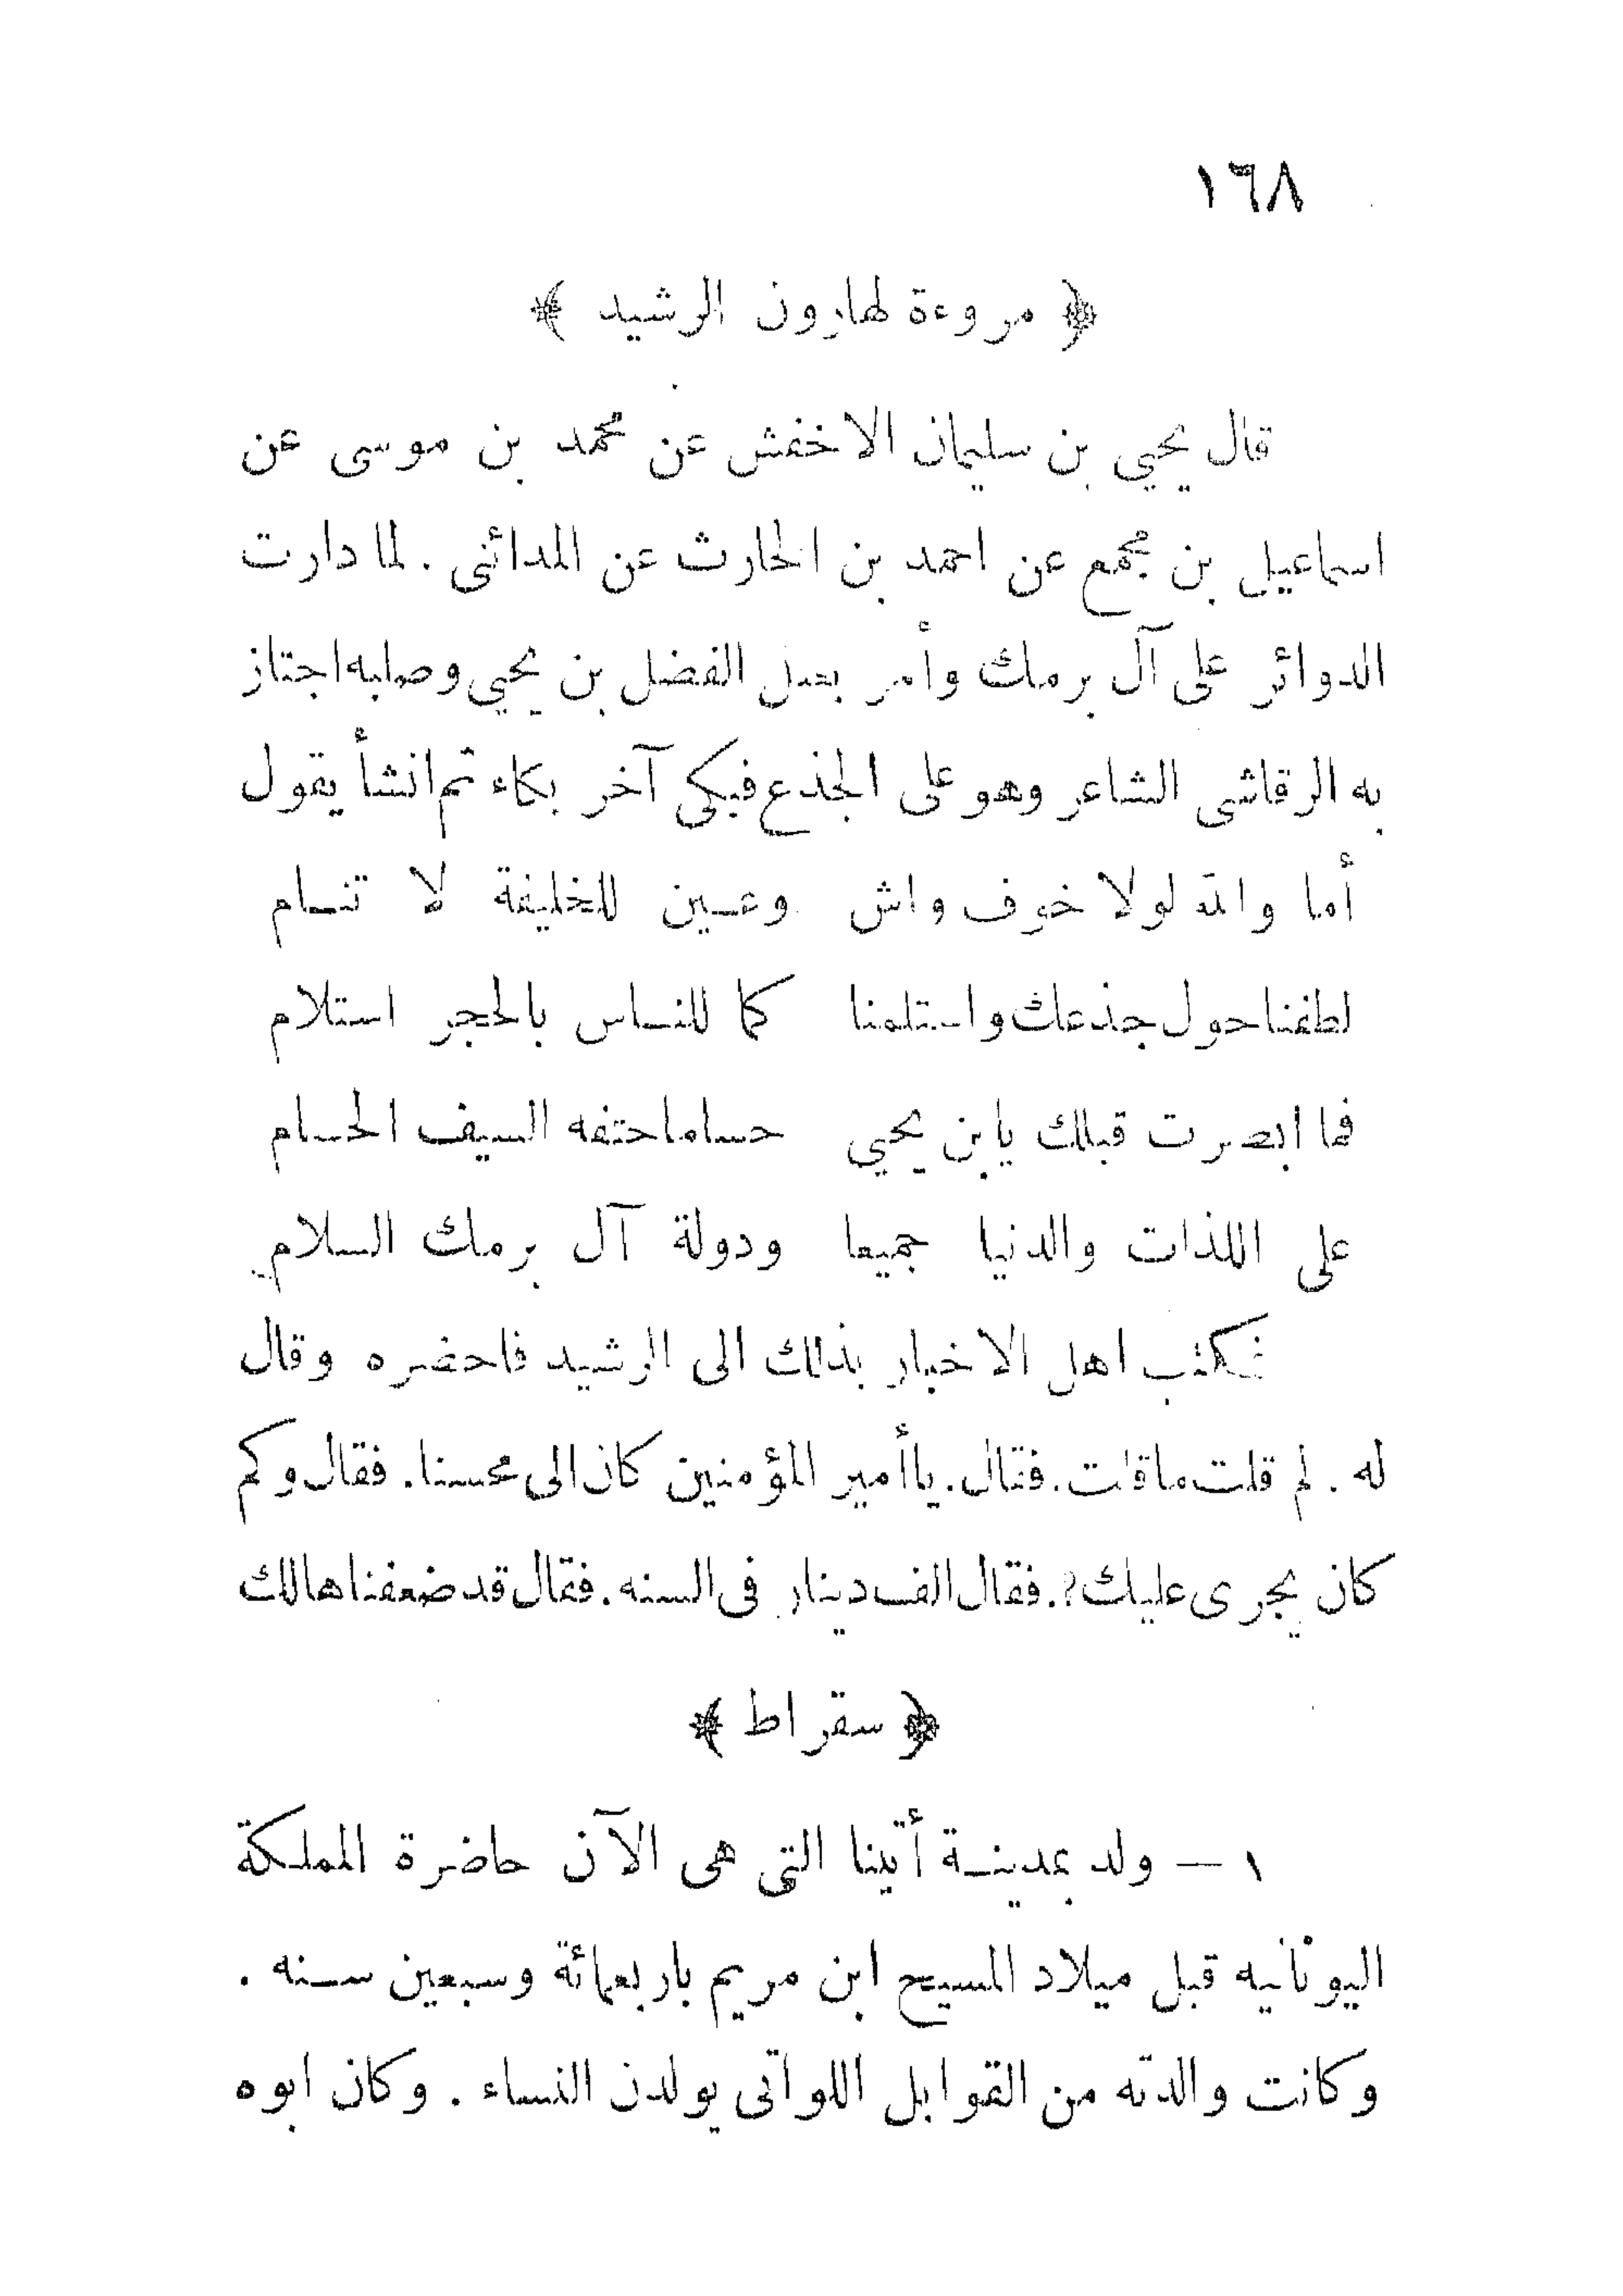 ١٦٨
﴿ مروءة لهارون الرشيد ﴾
قال يحيي بن سليمان الاخفش عن محمد بن موسى عن
اسماعيل بن مجمع عن احمد بن الحارث عن المدائنى . لما دارت
الدوائر على آل برمك وأمر بقتل الفضل بن يحيي وصلبه اجتاز
به الرقاشى الشاعر وهو على الجذع فبكى آخر بكاء ثم انشأ يقول
أما والله لولا خوف واش وعين للخليفة لا تنام
لطفنا حول جذعك واستلمنا كما للناس بالحجر استلام
فما ابصرت قبلك يابن يحيي حساما حتفه السيف الحسام
على اللذات والدنيا جميعا ودولة آل برمك السلام
فكتب اهل الاخبار بذلك الى الرشيد فاحضره وقال
له . لم قلت ماقلت . فقال . ياأمير المؤمنين كان الى محسنا . فقال وكم
كان يجرى عليك ؟ . فقال الف دينار فى السنه . فقال قد ضعفناها لك
﴿ سقراط ﴾
١ — ولد بمدينة أتينا التى هى الآن حاضرة المملكة
اليونانيه قبل ميلاد المسيح ابن مريم باربعمائة وسبعين سنه .
وكانت والدته من القوابل اللواتى يولدن النساء . وكان ابوه